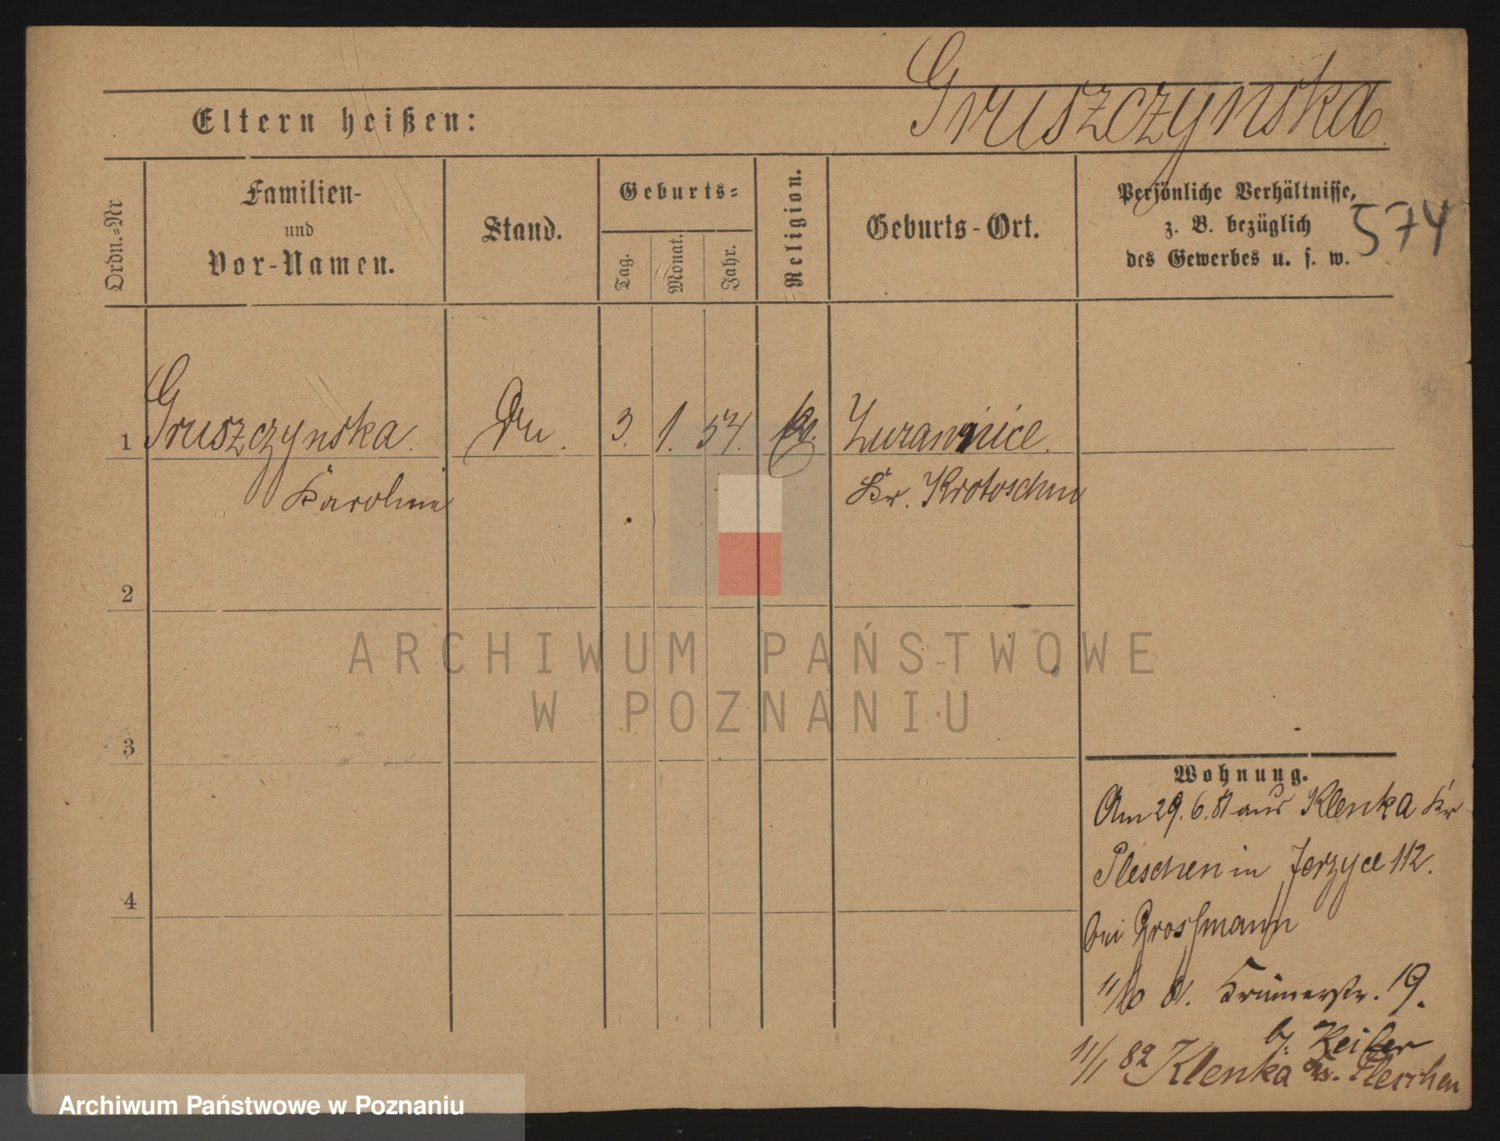 Gruszczynska
Eltern heißen:
Ordn.=Nr
Familien-
und
Vor-Namen.
Stand.
Geburts=
Tag.
Monat.
Jahr.
Religion.
Geburts-Ort.
Persönliche Verhältnisse,
z. B. bezüglich
des Gewerbes u. s. w.
574
1 Gruszczynska. 3. 1. 54.
Karoline Kr. Krotoschin
2
3
4
ARCHIWUM PAŃSTWOWE
W POZNANIU
Wohnung.
Am 29. 6. 81 aus Klenka Kr
Pleschen in Jerzyce 112.
bei Grossmann
11/10 81. 19.
b/.
11/1 82 Klenka Kr. Pleschen
Archiwum Państwowe w Poznaniu